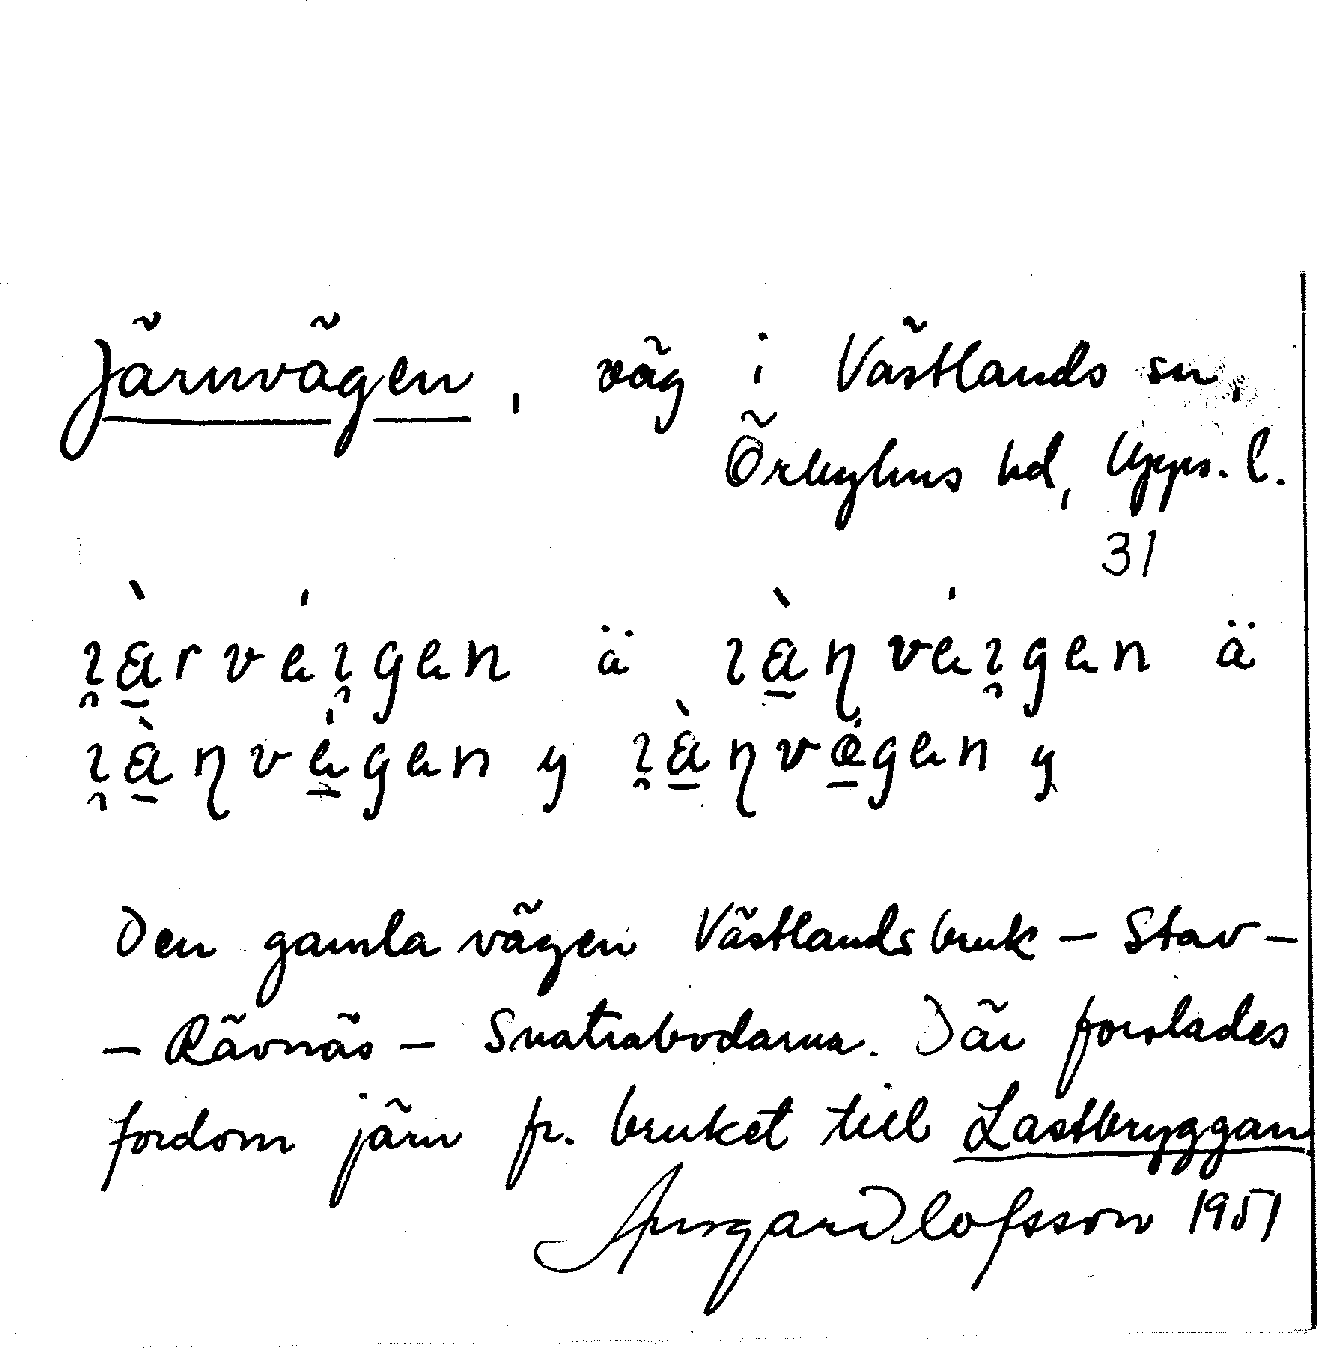 Järnvägen, väg i Västlands sn,
Örbyhus hd, Upps. l.
31
ä ä
y y
Den gamla vägen Västlandsbruk – Stav –
– Rävnäs – Snatrabodarna. Där forslades
fordom järn fr. bruket till Lastbryggan
Ansgar Olofsson 1951